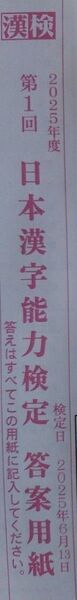 漢検
2025年度
第1回 日本漢字能力検定 答案用紙
検定日 2025年6月13日
答えはすべてこの用紙に記入してください。